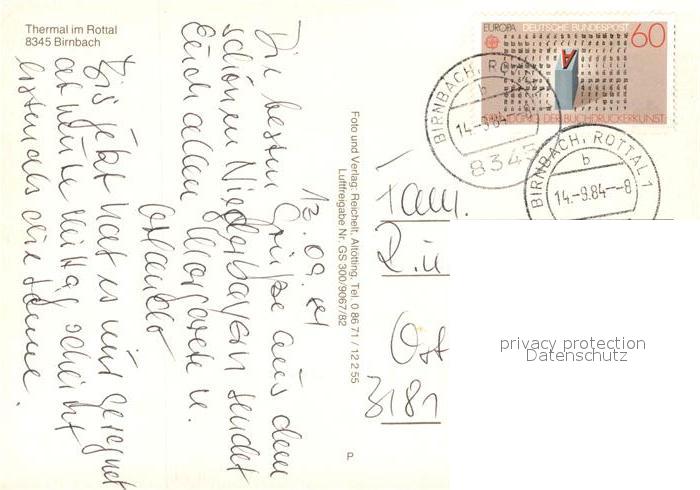 Thermal im Rottal
8345 Birnbach
13.09.84
Die besten Grüße aus dem
schönen Niederbayern sendet
Euch allen Margarete u.
Bis jetzt hat es nur geregnet
ab heute Mittag scheint
erstmals die Sonne.
Foto und Verlag: Reichelt, Altötting, Tel. 0 86 71 / 12 2 55
Luftfreigabe Nr. GS 300/9067/82
P
EUROPA DEUTSCHE BUNDESPOST 60
ERFINDUNG DER BUCHDRUCKERKUNST
BIRNBACH, ROTTAL
b
14.-9.84
8345
BIRNBACH, ROTTAL 1
b
14.-9.84--8
Fam.
R. u
Ost
3181
privacy protection
Datenschutz